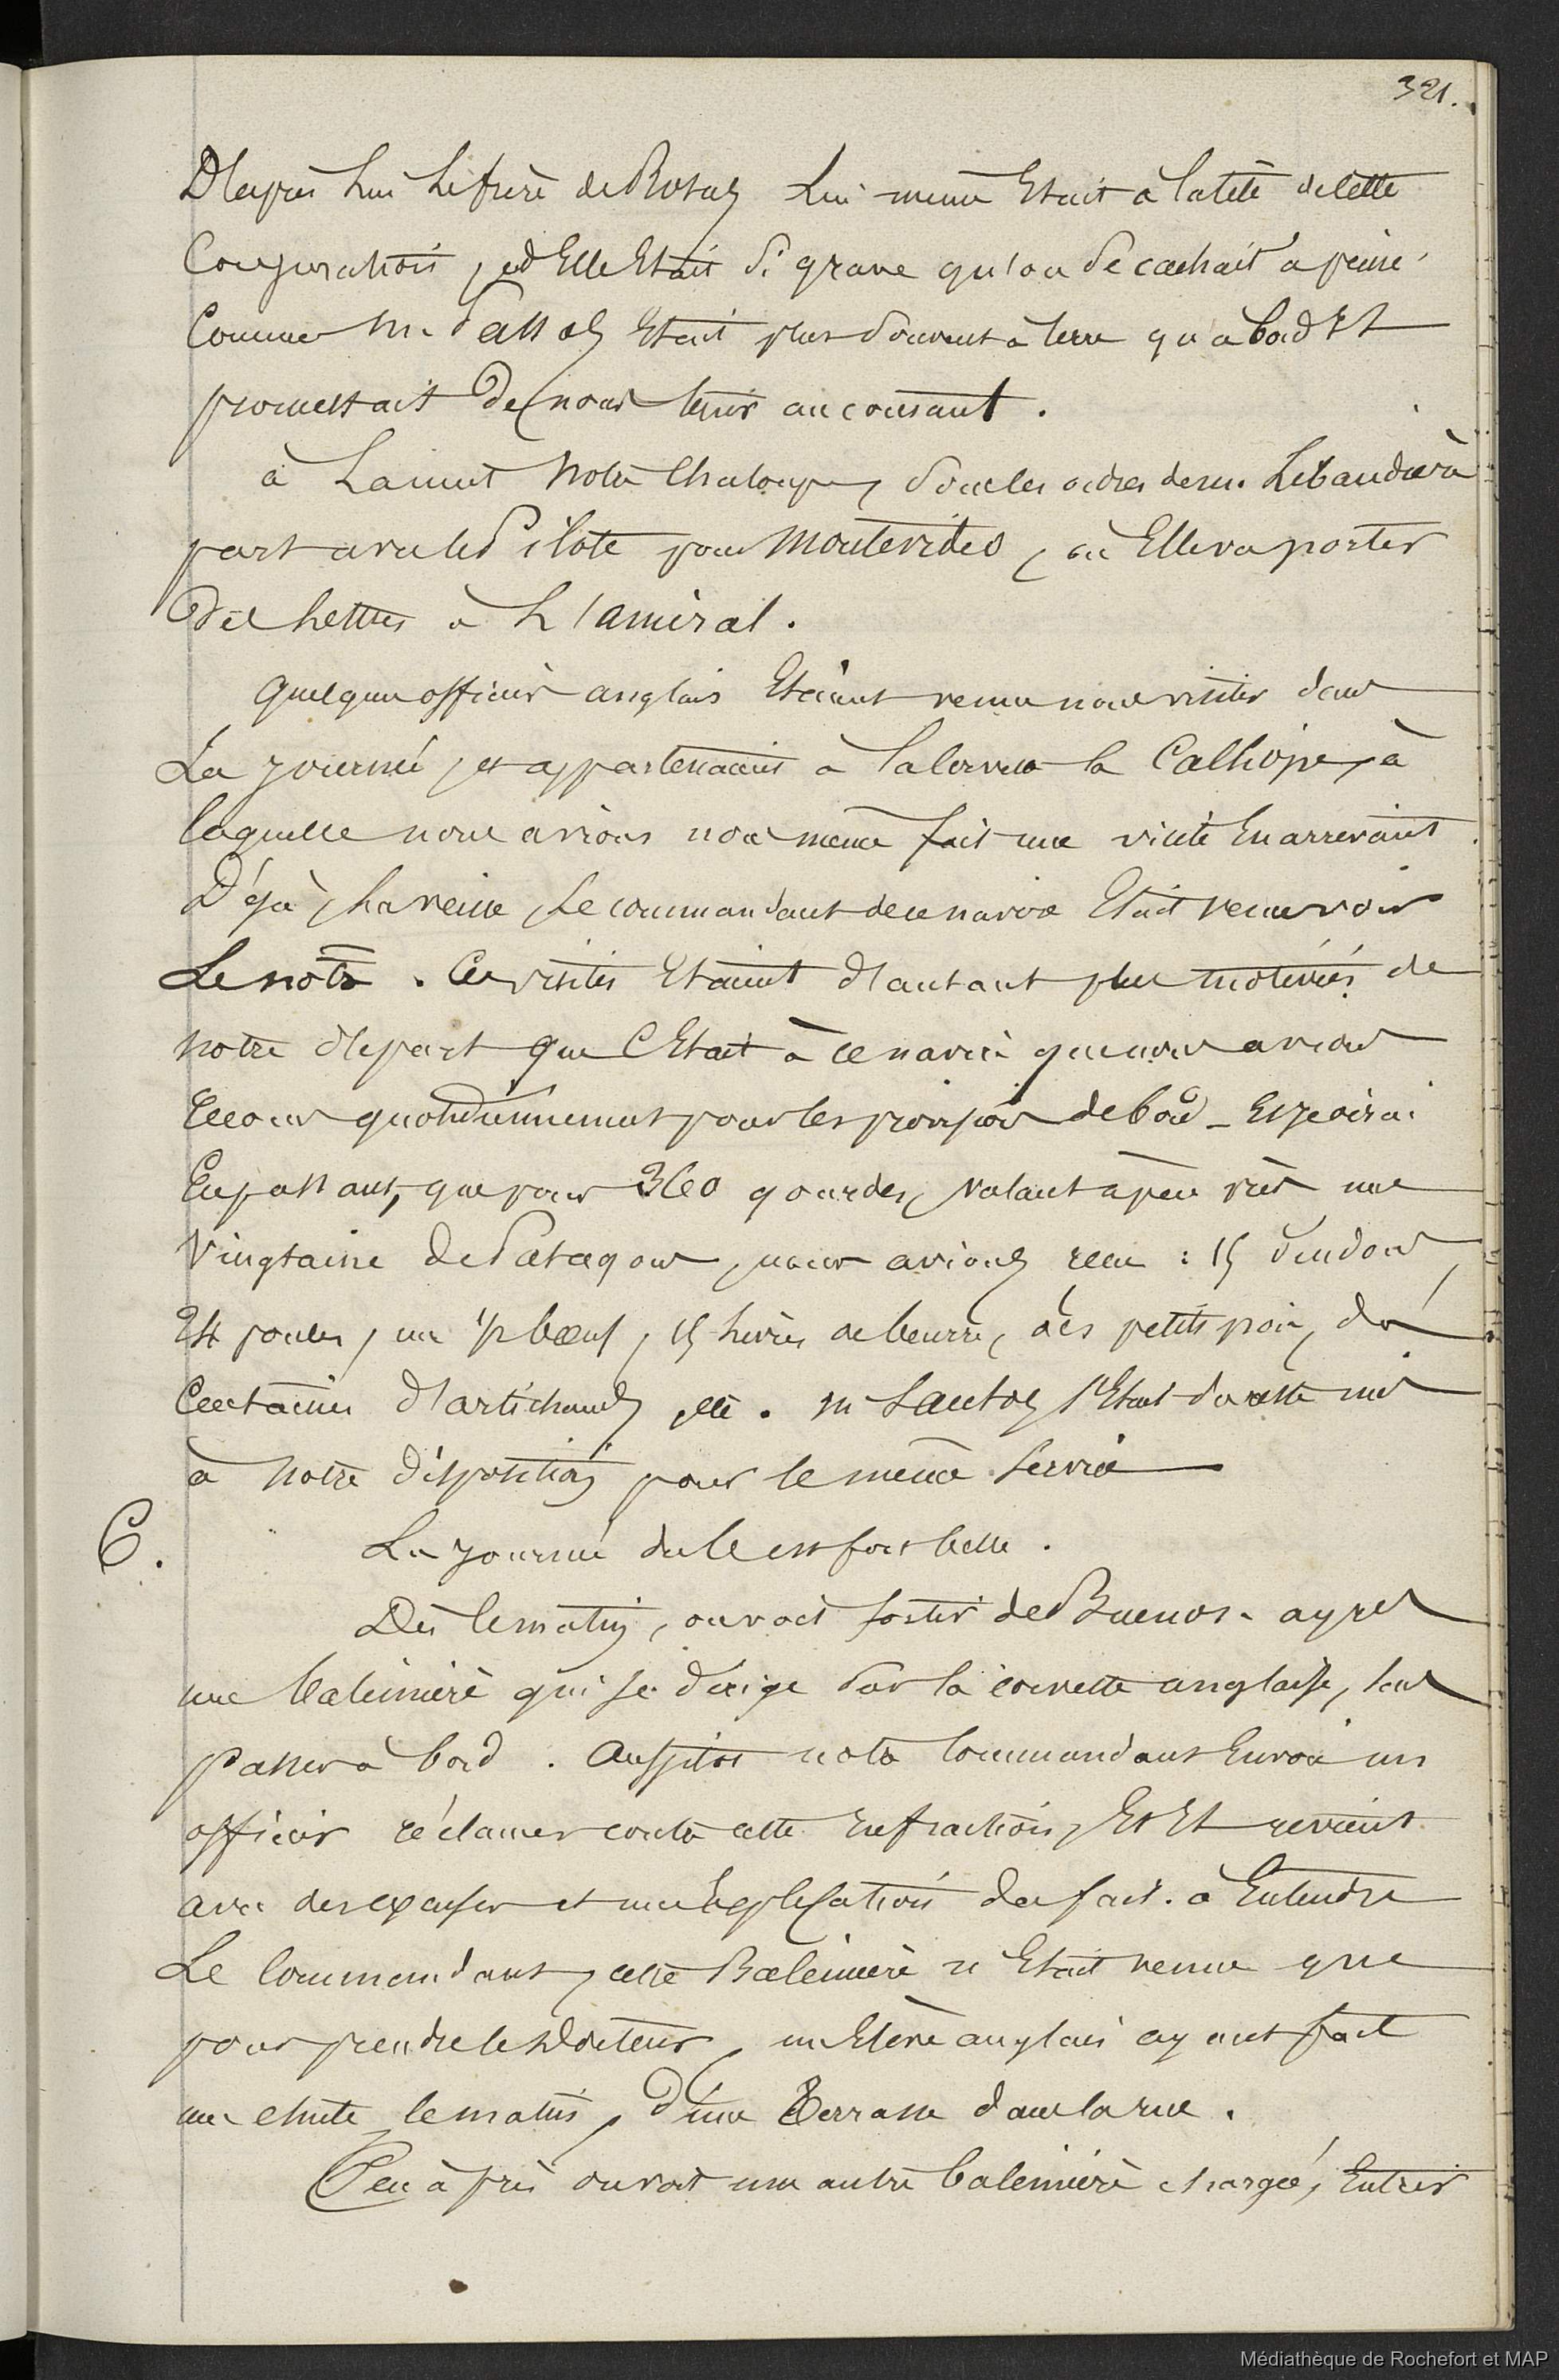 321.
D'après lui le frère de Rosas lui même était à la tête de cette
Conjuration, et Elle Etait si grave qu'on se cachait à peine.
Comme M. Passos Etait plus souvent à terre qu'à bord Il
promettait de nous tenir au courant.
à La nuit notre Chaloupe, sous les ordres de m. Lebaudière
part avec le Pilote pour Montevideo, où Elle va porter
des lettres à L'amiral.
quelques officiers anglais Etaient venus nous visiter dans
La journée, et appartenaient à la corvette la Calliope, à
laquelle nous avions nous même fait une visite En arrivant.
Déjà, La veille, Le commandant de ce navire Etait venu voir
Le notre. Ces visites Etaient d'autant plus motivées de
notre départ que C'Etait à ce navire que nous avions
recours quotidiennement pour les provisions de bord _ Et je dirai
En passant, que pour 360 gourdes, valant à peu près une
Vingtaine de Patagons, nous avions reçu : 15 dindons,
24 poules, un 1/2 bœuf, 15 livres de beurre, des petits pois, des
Centaines d'artichauds, etc. M Santos s'Etait du reste mis
à notre disposition pour le même service
6.
La journée du 6 est fort belle.
Dès le matin, on voit sortir de Buenos-ayres
une baleinière qui se dirige sur la corvette anglaise, sans
passer à bord. Aussitôt notre Commandant Envoie un
officier réclamer contre cette Infraction, Et Il revient
avec des excuses et une Explication du fait. à Entendre
Le Commandant, cette Baleinière n'Etait venue que
pour prendre le Docteur, un Elève anglais ayant fait
une chute, le matin, d'une Terrasse dans la rue.
Peu après on voit une autre baleinière chargée, Entrer
Médiathèque de Rochefort et MAP